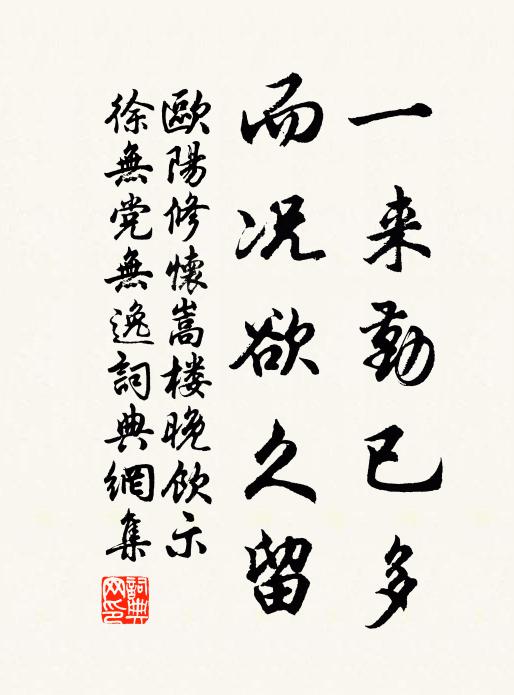 一来勤已多
而况欲久留
歐陽修懷嵩楼晚飲示
徐無党無逸詞典網集
詞典网印